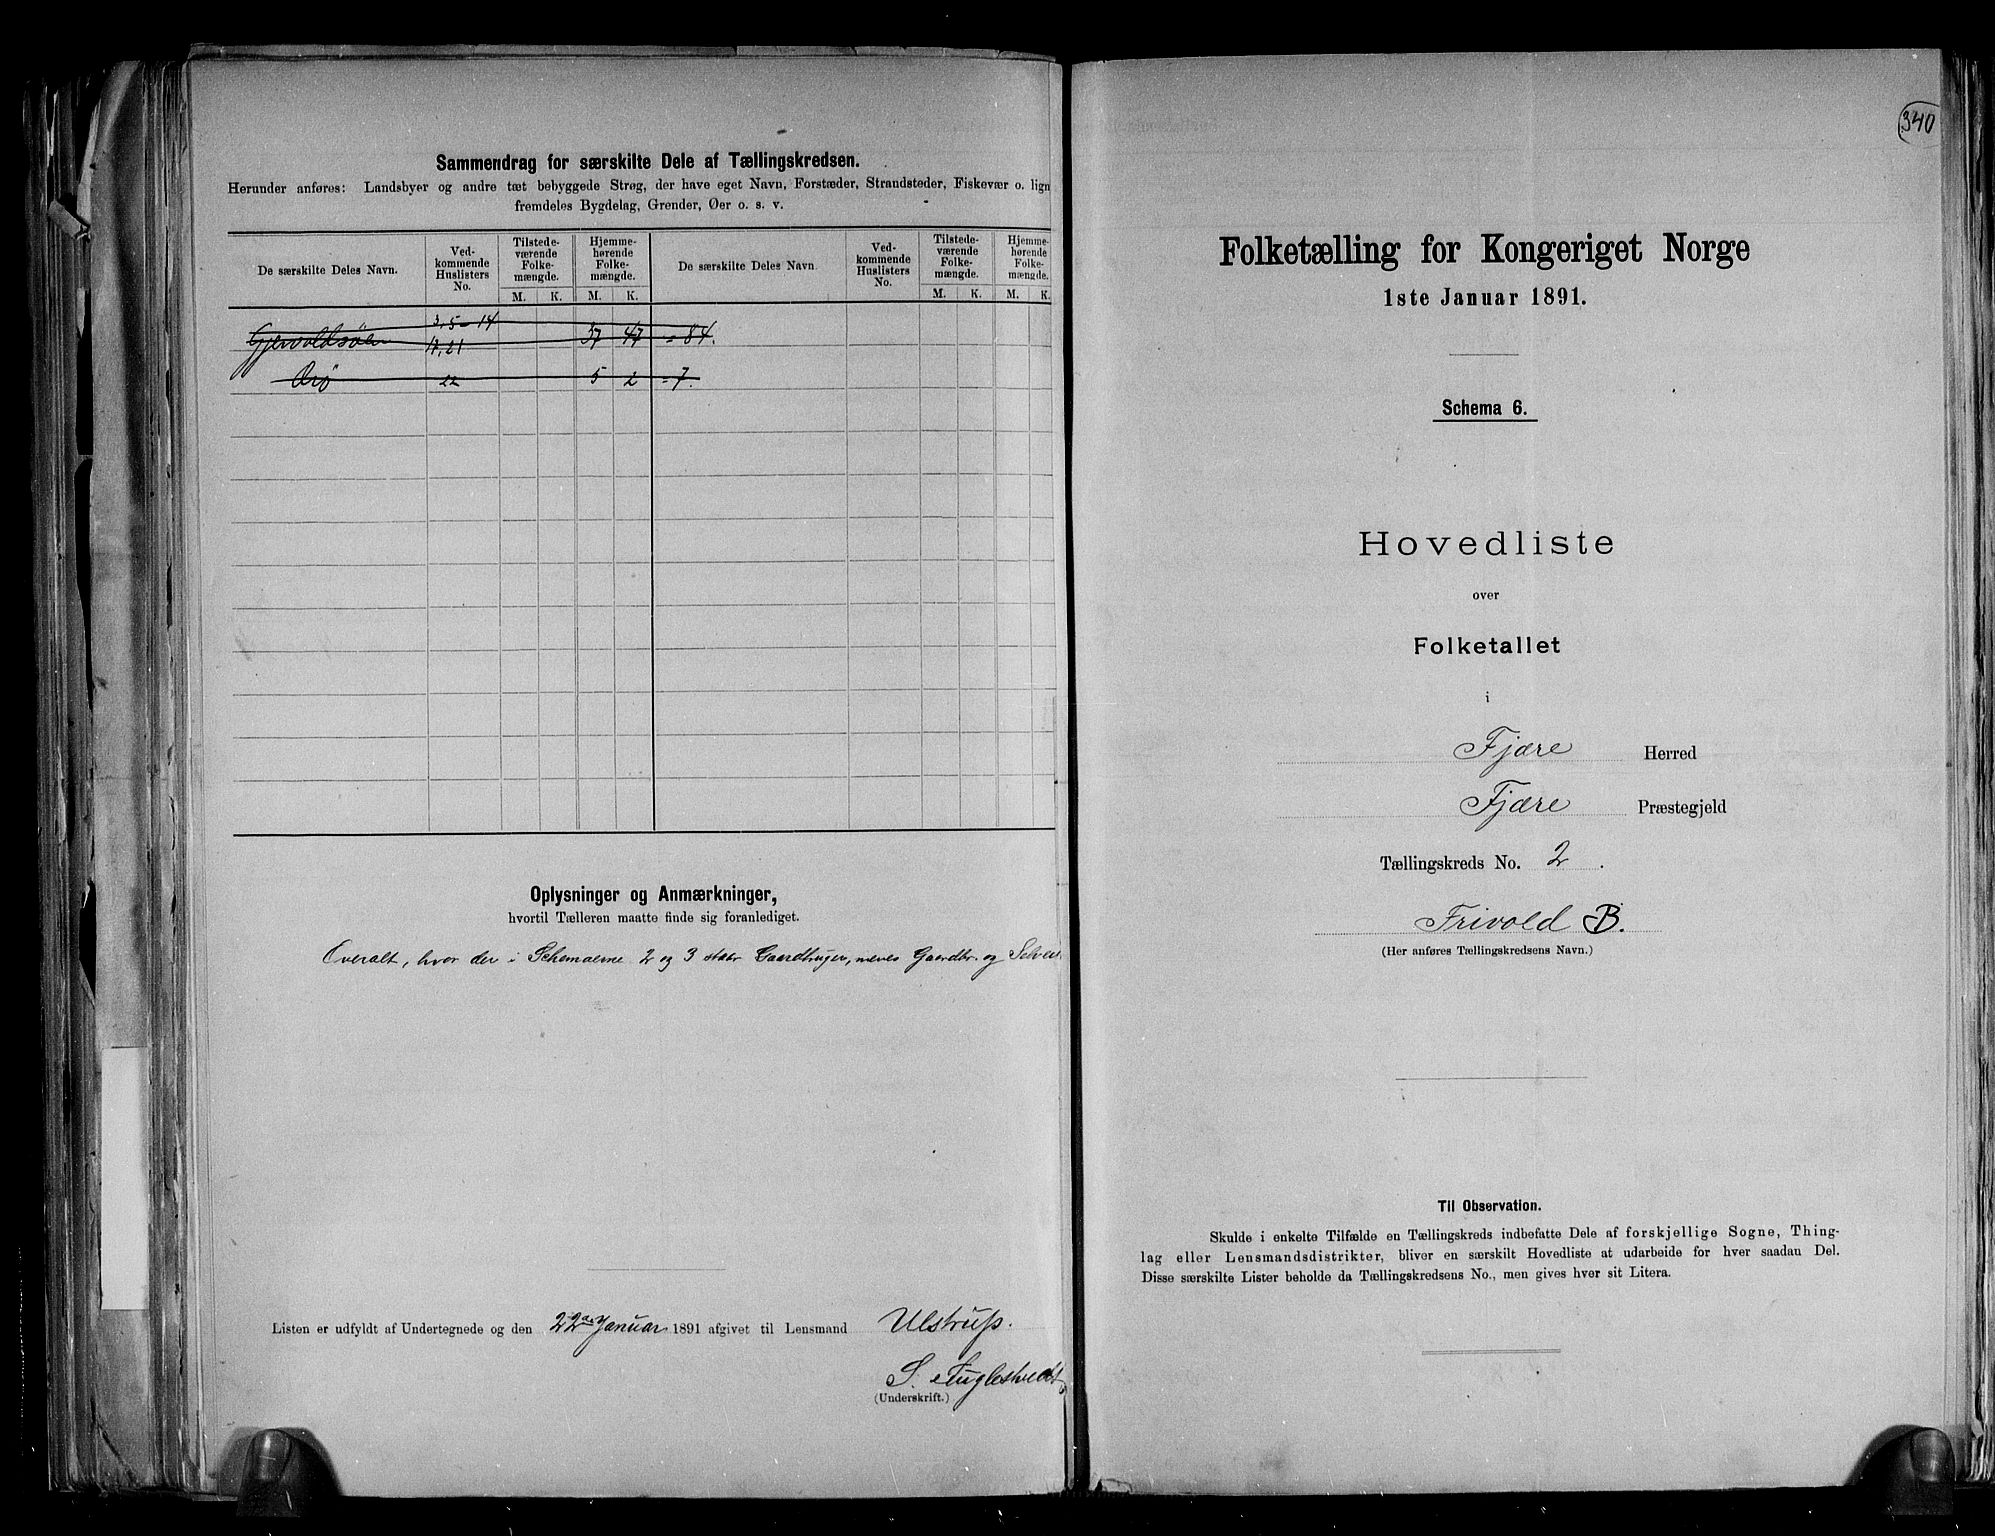 Sammendrag for særskilte Dele af Tællingskredsen.
Herunder anføres: Landsbyer og andre tæt bebyggede Strøg, der have eget Navn, Forstæder, Strandsteder, Fiskevær o. lign
fremdeles Bygdelag, Grender, Øer o. s. v.
De særskilte Deles Navn. Ved-kommende Huslisters No. Tilstede-værende Folke-mængde. Hjemme-hørende Folke-mængde. De særskilte Deles Navn. Ved-kommende Huslisters No. Tilstede-værende Folke-mængde. Hjemme-hørende Folke-mængde.
M. K. M. K. M. K. M. K.
Gjervoldsøen 3, 5-14 17, 21 37 47 = 84.
Ørø 22 5 2 = 7.
Oplysninger og Anmærkninger,
hvortil Tælleren maatte finde sig foranlediget.
Overalt, hvor der i Schemaerne 2 og 3 staar Gaardbruger, menes Gaardbr. og Selvei
Listen er udfyldt af Undertegnede og den 22de Januar 1891 afgivet til Lensmand Ulstrup.
S. Fuglestvedt
(Underskrift.)
340
Folketælling for Kongeriget Norge
1ste Januar 1891.
Schema 6.
Hovedliste
over
Folketallet
i
Fjære Herred
Fjære Præstegjeld
Tællingskreds No. 2.
Frivold B.
(Her anføres Tællingskredsens Navn.)
Til Observation.
Skulde i enkelte Tilfælde en Tællingskreds indbefatte Dele af forskjellige Sogne, Thing-
lag eller Lensmandsdistrikter, bliver en særskilt Hovedliste at udarbeide for hver saadan Del.
Disse særskilte Lister beholde da Tællingskredsens No., men gives hver sit Litera.